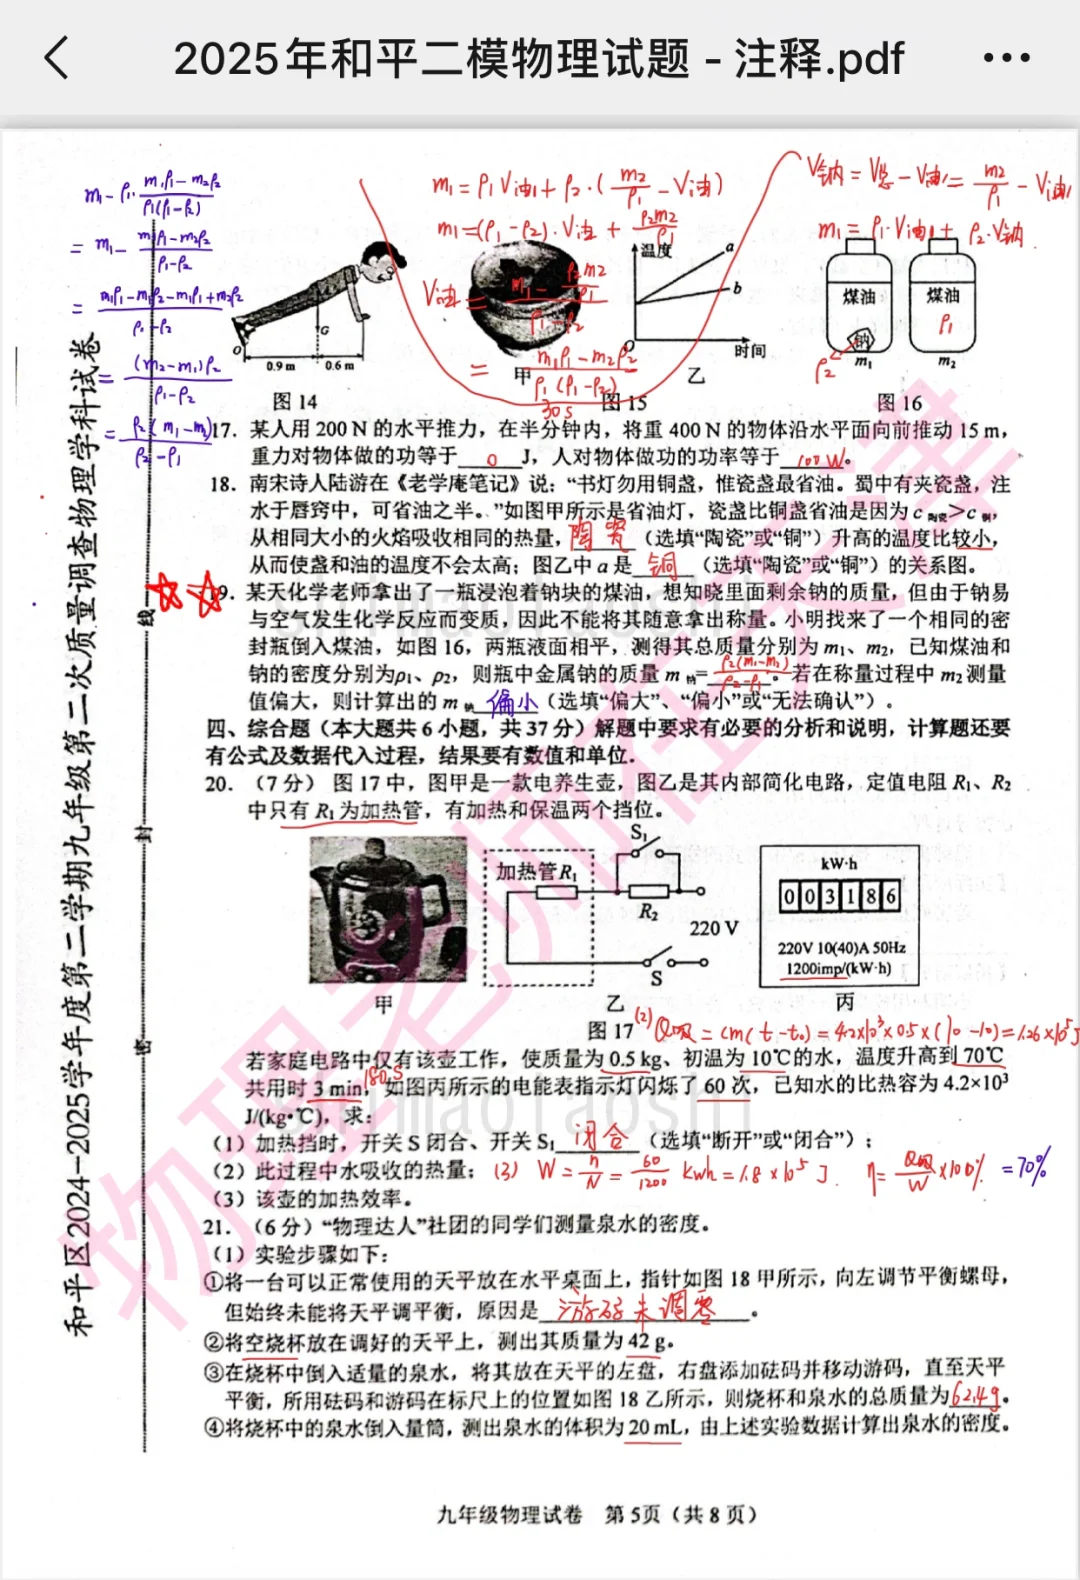 2025年和平二模物理试题 - 注释.pdf
m₁ - ρ₁· (m₁ρ₁ - m₂ρ₂)/(ρ₁(ρ₁-ρ₂))
= m₁ - (m₁ρ₁ - m₂ρ₂)/(ρ₁-ρ₂)
= (m₁ρ₁ - m₁ρ₂ - m₁ρ₁ + m₂ρ₂)/(ρ₁-ρ₂)
= (m₂-m₁)ρ₂/(ρ₁-ρ₂)
= ρ₂(m₁-m₂)/(ρ₂-ρ₁)
m₁ = ρ₁V油1 + ρ₂·(m₂/ρ₁ - V油)
m₁ = (ρ₁-ρ₂)·V油 + ρ₂m₂/ρ₁
V油 = (m₁ - ρ₂m₂/ρ₁)/(ρ₁-ρ₂)
= (m₁ρ₁ - m₂ρ₂)/(ρ₁(ρ₁-ρ₂))
V钠 = V总 - V油1 = m₂/ρ₁ - V油1
m₁ = ρ₁·V油1 + ρ₂·V钠
G
O
0.9 m 0.6 m
图 14
甲
温度
a
b
O
时间
乙
图 15
煤油
钠
ρ₂
m₁
煤油
ρ₁
m₂
图 16
30s
17. 某人用 200 N 的水平推力，在半分钟内，将重 400 N 的物体沿水平面向前推动 15 m，
重力对物体做的功等于 0 J，人对物体做功的功率等于 100W。
18. 南宋诗人陆游在《老学庵笔记》说：“书灯勿用铜盏，惟瓷盏最省油。蜀中有夹瓷盏，注
水于唇窍中，可省油之半。”如图甲所示是省油灯，瓷盏比铜盏省油是因为 c陶瓷＞c铜，
从相同大小的火焰吸收相同的热量，陶瓷（选填“陶瓷”或“铜”）升高的温度比较小，
从而使盏和油的温度不会太高；图乙中 a 是 铜 （选填“陶瓷”或“铜”）的关系图。
19. 某天化学老师拿出了一瓶浸泡着钠块的煤油，想知晓里面剩余钠的质量，但由于钠易
与空气发生化学反应而变质，因此不能将其随意拿出称量。小明找来了一个相同的密
封瓶倒入煤油，如图 16，两瓶液面相平，测得其总质量分别为 m₁、m₂，已知煤油和
钠的密度分别为ρ₁、ρ₂，则瓶中金属钠的质量 m钠= ρ₂(m₁-m₂)/(ρ₂-ρ₁)。若在称量过程中 m₂ 测量
值偏大，则计算出的 m钠 偏小（选填“偏大”、“偏小”或“无法确认”）。
四、综合题（本大题共 6 小题，共 37 分）解题中要求有必要的分析和说明，计算题还要
有公式及数据代入过程，结果要有数值和单位.
20. （7 分） 图 17 中，图甲是一款电养生壶，图乙是其内部简化电路，定值电阻 R₁、R₂
中只有 R₁ 为加热管，有加热和保温两个挡位。
甲
加热管R₁
S₁
R₂
220 V
S
乙
kW·h
0 0 3 1 8 6
220V 10(40)A 50Hz
1200imp/(kW·h)
丙
图 17
(2) Q吸 = cm(t-t₀) = 4.2×10³×0.5×(70-10) = 1.26×10⁵J
若家庭电路中仅有该壶工作，使质量为 0.5 kg、初温为 10℃的水，温度升高到 70℃
共用时 3 min，180s 如图丙所示的电能表指示灯闪烁了 60 次，已知水的比热容为 4.2×10³
J/(kg•℃)，求：
（1）加热挡时，开关 S 闭合、开关 S₁ 闭合 （选填“断开”或“闭合”）；
（2）此过程中水吸收的热量；(3) W = n/N = 60/1200 kwh = 1.8×10⁵ J. η = Q吸/W ×100% = 70%
（3）该壶的加热效率。
21. （6 分）“物理达人”社团的同学们测量泉水的密度。
（1）实验步骤如下：
①将一台可以正常使用的天平放在水平桌面上，指针如图 18 甲所示，向左调节平衡螺母，
但始终未能将天平调平衡，原因是 游码未调零 。
②将空烧杯放在调好的天平上，测出其质量为 42 g。
③在烧杯中倒入适量的泉水，将其放在天平的左盘，右盘添加砝码并移动游码，直至天平
平衡，所用砝码和游码在标尺上的位置如图 18 乙所示，则烧杯和泉水的总质量为 62.4g。
④将烧杯中的泉水倒入量筒，测出泉水的体积为 20 mL，由上述实验数据计算出泉水的密度。
九年级物理试卷 第 5页（共 8 页）
和平区2024-2025学年度第二学期九年级第二次质量调查物理学科试卷
线
封
密
物理老师在天津